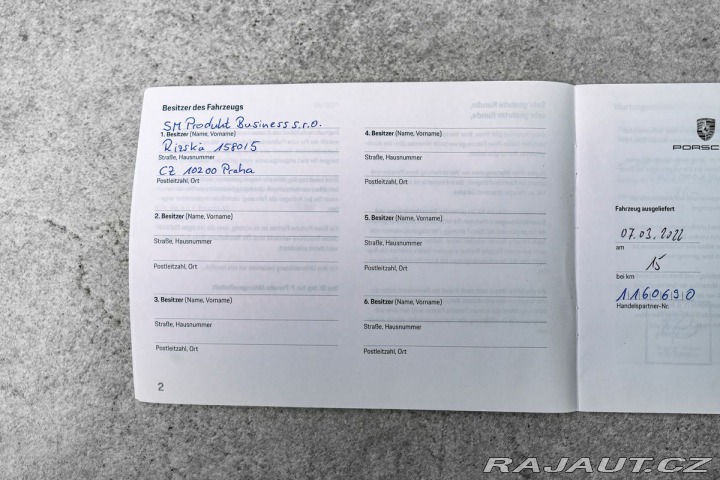 Besitzer des Fahrzeugs
SM Produkt Business s.r.o.
1. Besitzer (Name, Vorname)
Rizska 1580/5
Straße, Hausnummer
CZ 10200 Praha
Postleitzahl, Ort
2. Besitzer (Name, Vorname)
Straße, Hausnummer
Postleitzahl, Ort
3. Besitzer (Name, Vorname)
Straße, Hausnummer
Postleitzahl, Ort
2
4. Besitzer (Name, Vorname)
Straße, Hausnummer
Postleitzahl, Ort
5. Besitzer (Name, Vorname)
Straße, Hausnummer
Postleitzahl, Ort
6. Besitzer (Name, Vorname)
Straße, Hausnummer
Postleitzahl, Ort
PORSC
Fahrzeug ausgeliefert
07.03.2022
am
15
bei km
1160690
Handelspartner-Nr.
RAJAUT.CZ